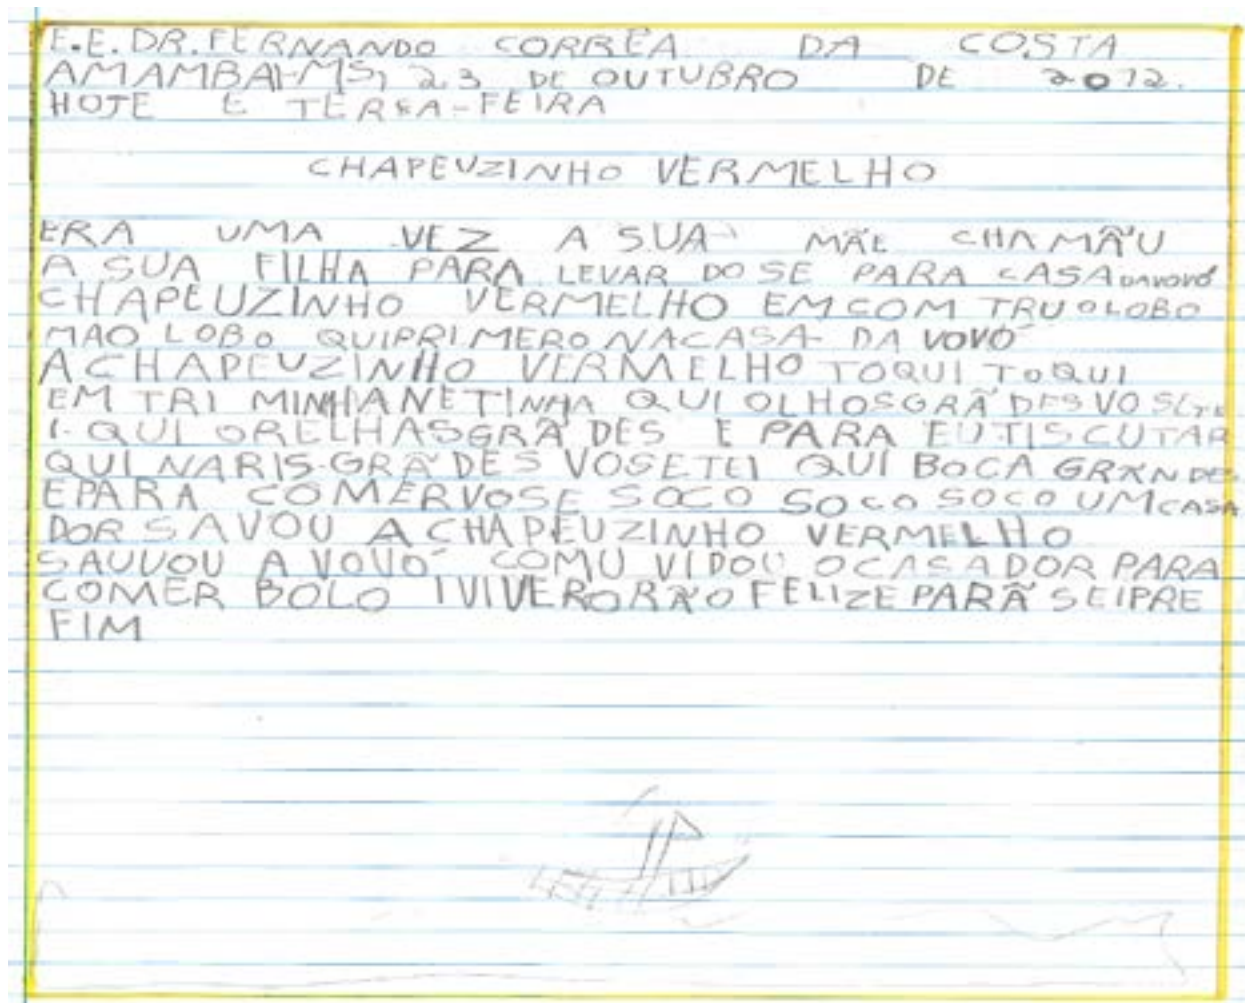 E.E. DR. FERNANDO CORRÊA DA COSTA
AMAMBAI-MS, 23 DE OUTUBRO DE 2012.
HOJE E TERSA-FEIRA
CHAPEUZINHO VERMELHO
ERA UMA VEZ A SUA MÃE CHAMÃU
A SUA FILHA PARA LEVAR DOSE PARA CASA DAVOVÓ
CHAPEUZINHO VERMELHO EMCOM TRU OLOBO
MAO LOBO QUIPRIMERO NACASA DA VOVÓ
A CHAPEUZINHO VERMELHO TOQUI TOQUI
EM TRI MINHANETINHA QUI OLHOSGRÃDES VO SETE
I- QUI ORELHASGRÃDES E PARA EUTISCUTAR
QUI NARIS-GRÃDES VOSETEI QUI BOCA GRANDES
EPARA COMERVOSE SOCO SOCO SOCO UMCASA
DOR SAVOU A CHAPEUZINHO VERMELHO
SAUVOU A VOVÓ COMU VIDOU OCASADOR PARA
COMER BOLO IVIVERORÃO FELIZE PARÃ SEIPRE
FIM